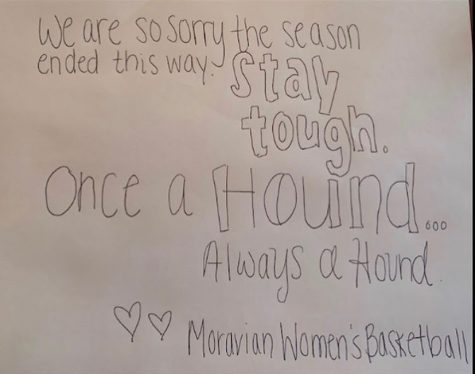 We are so sorry the season
ended this way. Stay
tough.
Once a Hound...
Always a Hound.
Moravian Women's Basketball